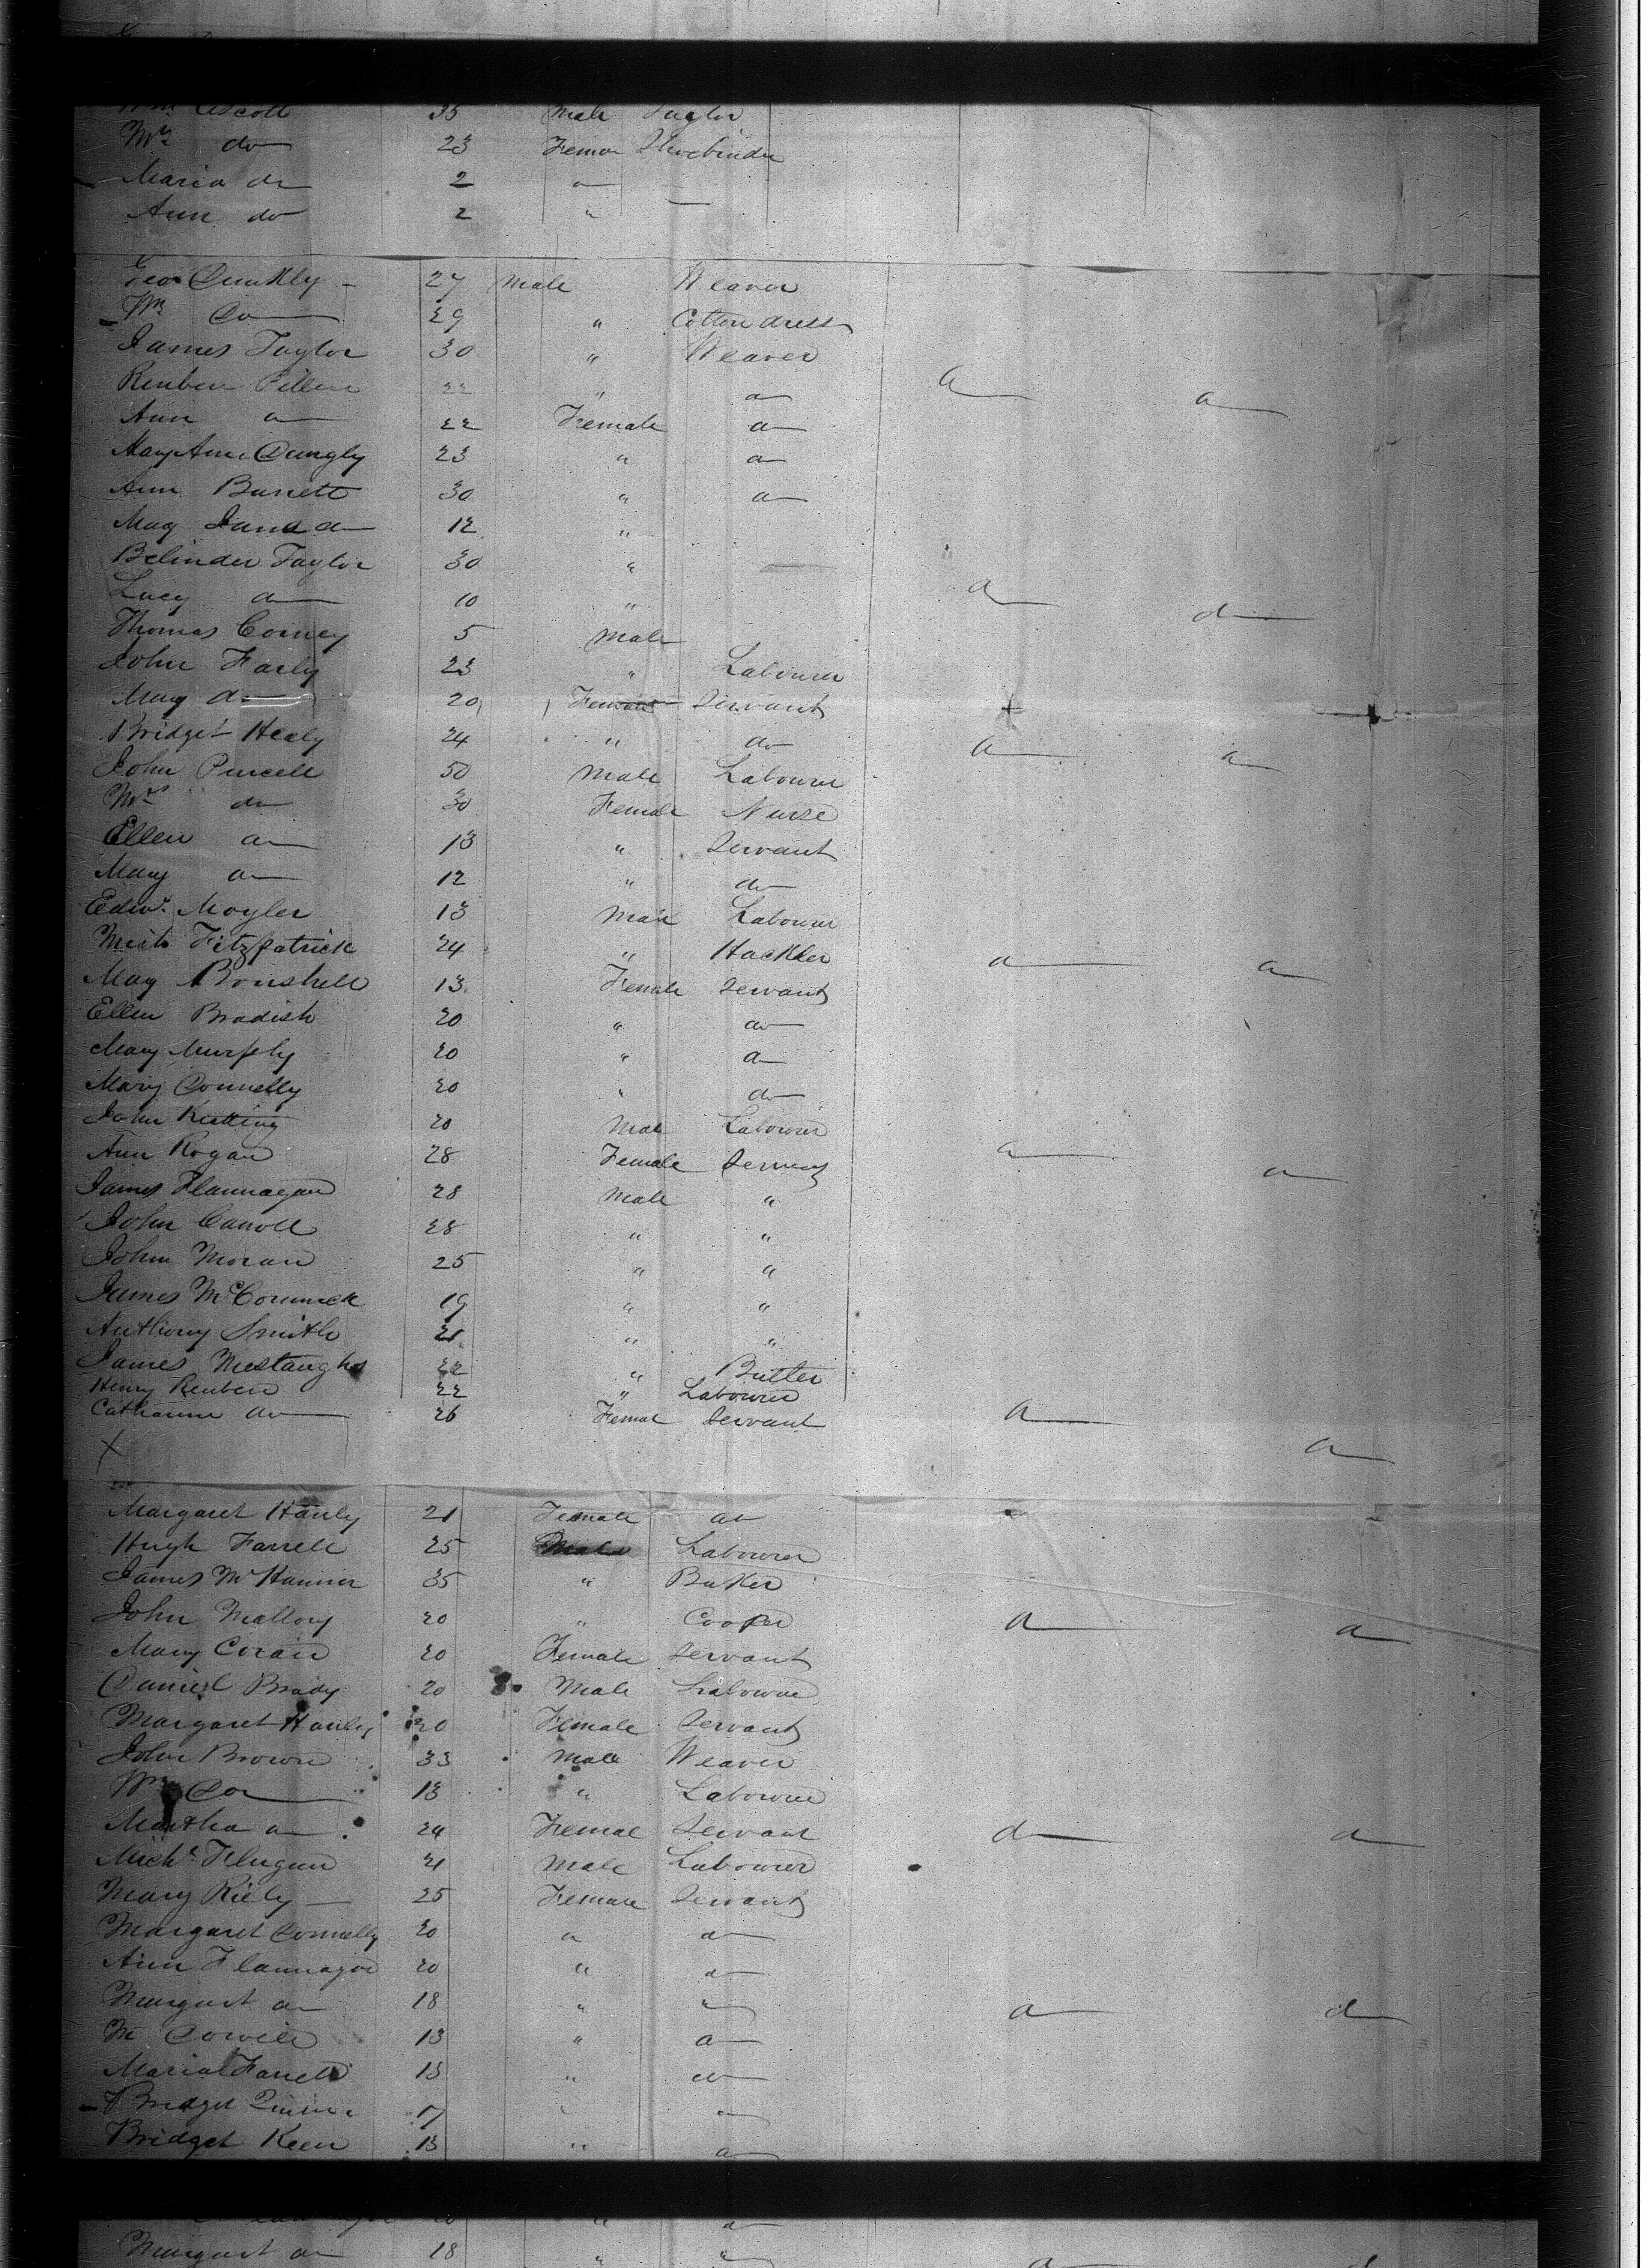 Wm Escott 35 Male Taylor
Mrs do 23 Femae Shoebinder
Maria do 2 " —
Ann do 2 " —
Geo Dunkly — 27 Male Weaver
Wm Do 29 " Cotton dress
James Taylor 30 " Weaver
Reuben 22 " do do do
Ann do 22 Female do
Mary Ann Dungly 23 " do
Ann Barrett 30 " do
May Jane do 12 "
Belinder Taylor 30 " —
Lucy do 10 " do do
Thomas Corney 5 Male
John Farly 23 " Labourer
May do 20 Female Servant
Bridget Healy 24 " do do do
John Purcell 50 Male Labourer
Mrs do 30 Female Nurse
Ellen do 13 " Servant
Mary do 12 " do
Edwd. Moyler 13 Male Labourer
Fitzpatrick 24 " Hackler do do
May 13 Female Servant
Ellen Bradish 20 " do
Mary Murphy 20 " do
Mary Connelly 20 " do
John Keatting 20 Male Labourer
Ann Rogan 28 Female Servant do do
James Flannagan 28 Male "
John Carroll 28 " "
John Moran 25 " "
James McCormick 19 " "
Anthony Smith 21 " "
James 22 " Butler
Henry Reuben 22 " Labourer
Catharine do 26 Femal Servant do do
X
Margaret Hanly 21 Female do
Hugh Farrell 25 Male Labourer
James 35 " Baker
John Mallony 20 " Cooper do do
Mary Corain 20 Female Servant
Daniel Brady 20 Male Labourer
Margaret Hanley 20 Female Servant
John Brown 33 Male Weaver
Wm Do 13 " Labourer
Martha do 24 Femal Servant do do
Michl. Flugan 21 Male Labourer
Mary Riely — 25 Female Servant
Margaret Connelly 20 " do
Ann Flannagan 20 " do
Margaret do 18 " " do do
13 " do
Maria Farrell 13 " do
Bridget 17 " "
Bridget Keen 13 " do
" do
Margaret do 18 " " do do